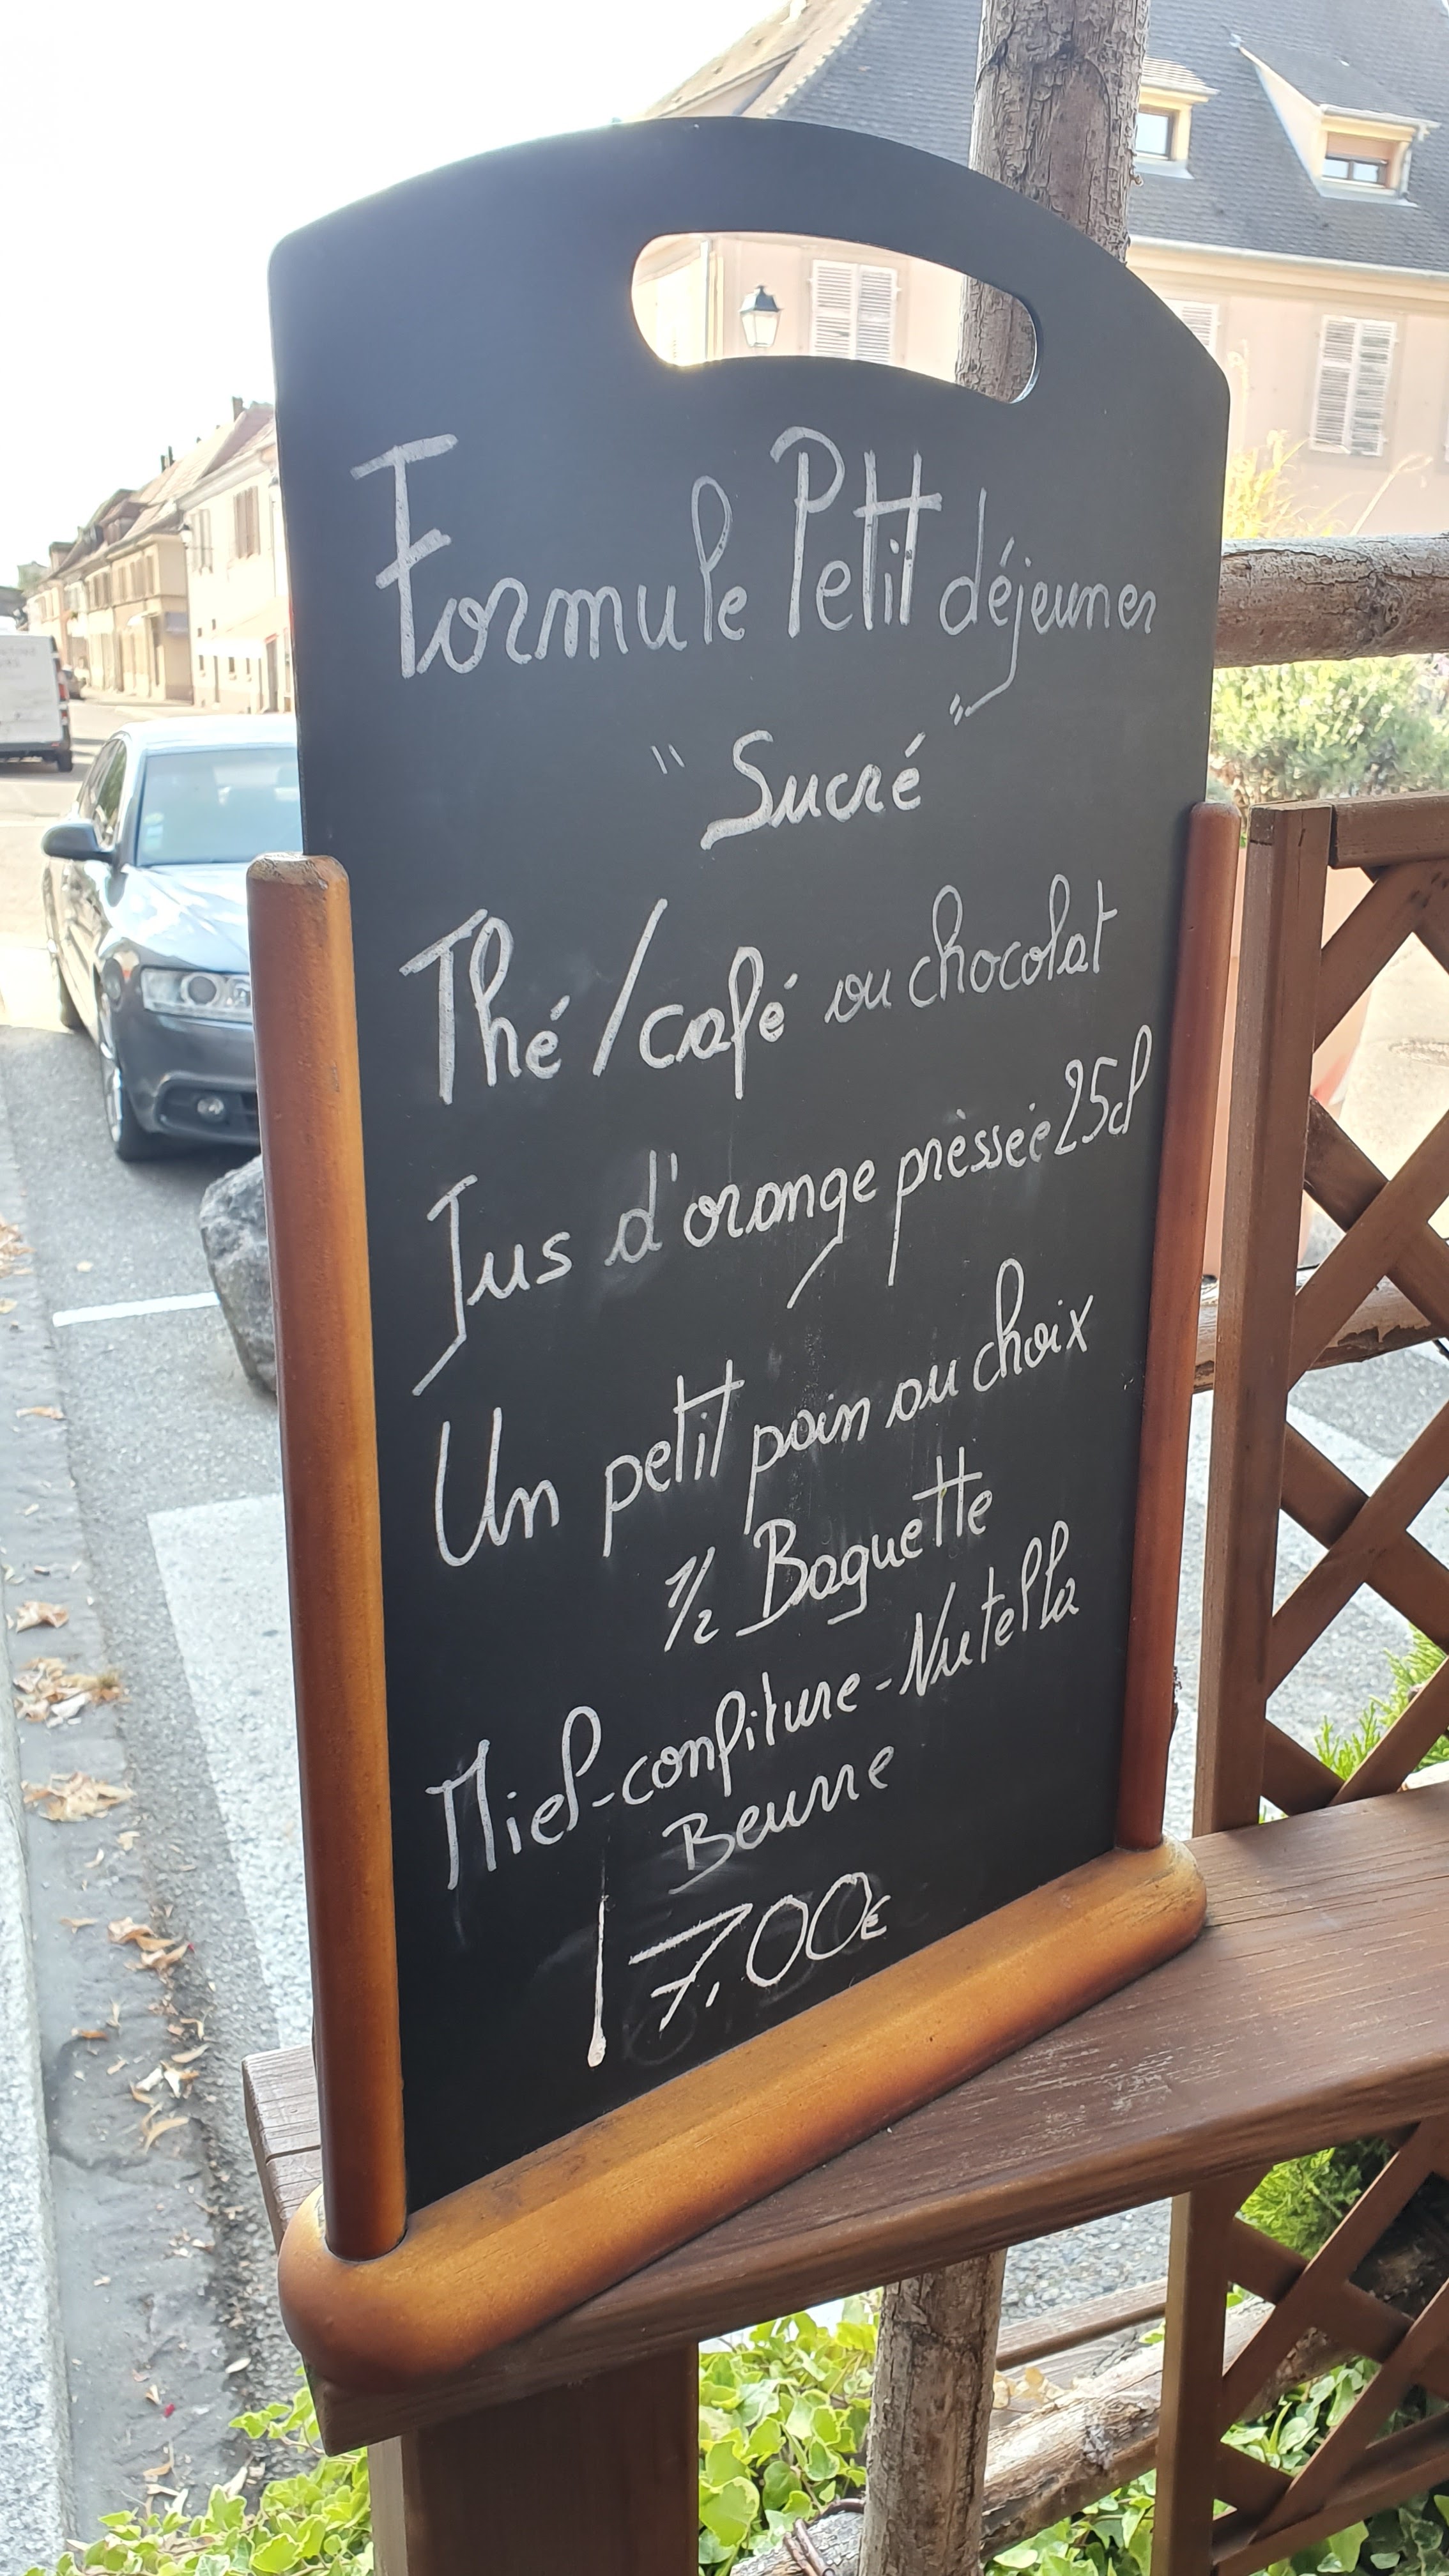 Formule Petit déjeuner
"Sucré"
Thé/café ou chocolat
Jus d'orange prèssée 25cl
Un petit pain au choix
1/2 Baguette
Miel-confiture-Nutella
Beurre
17,00€